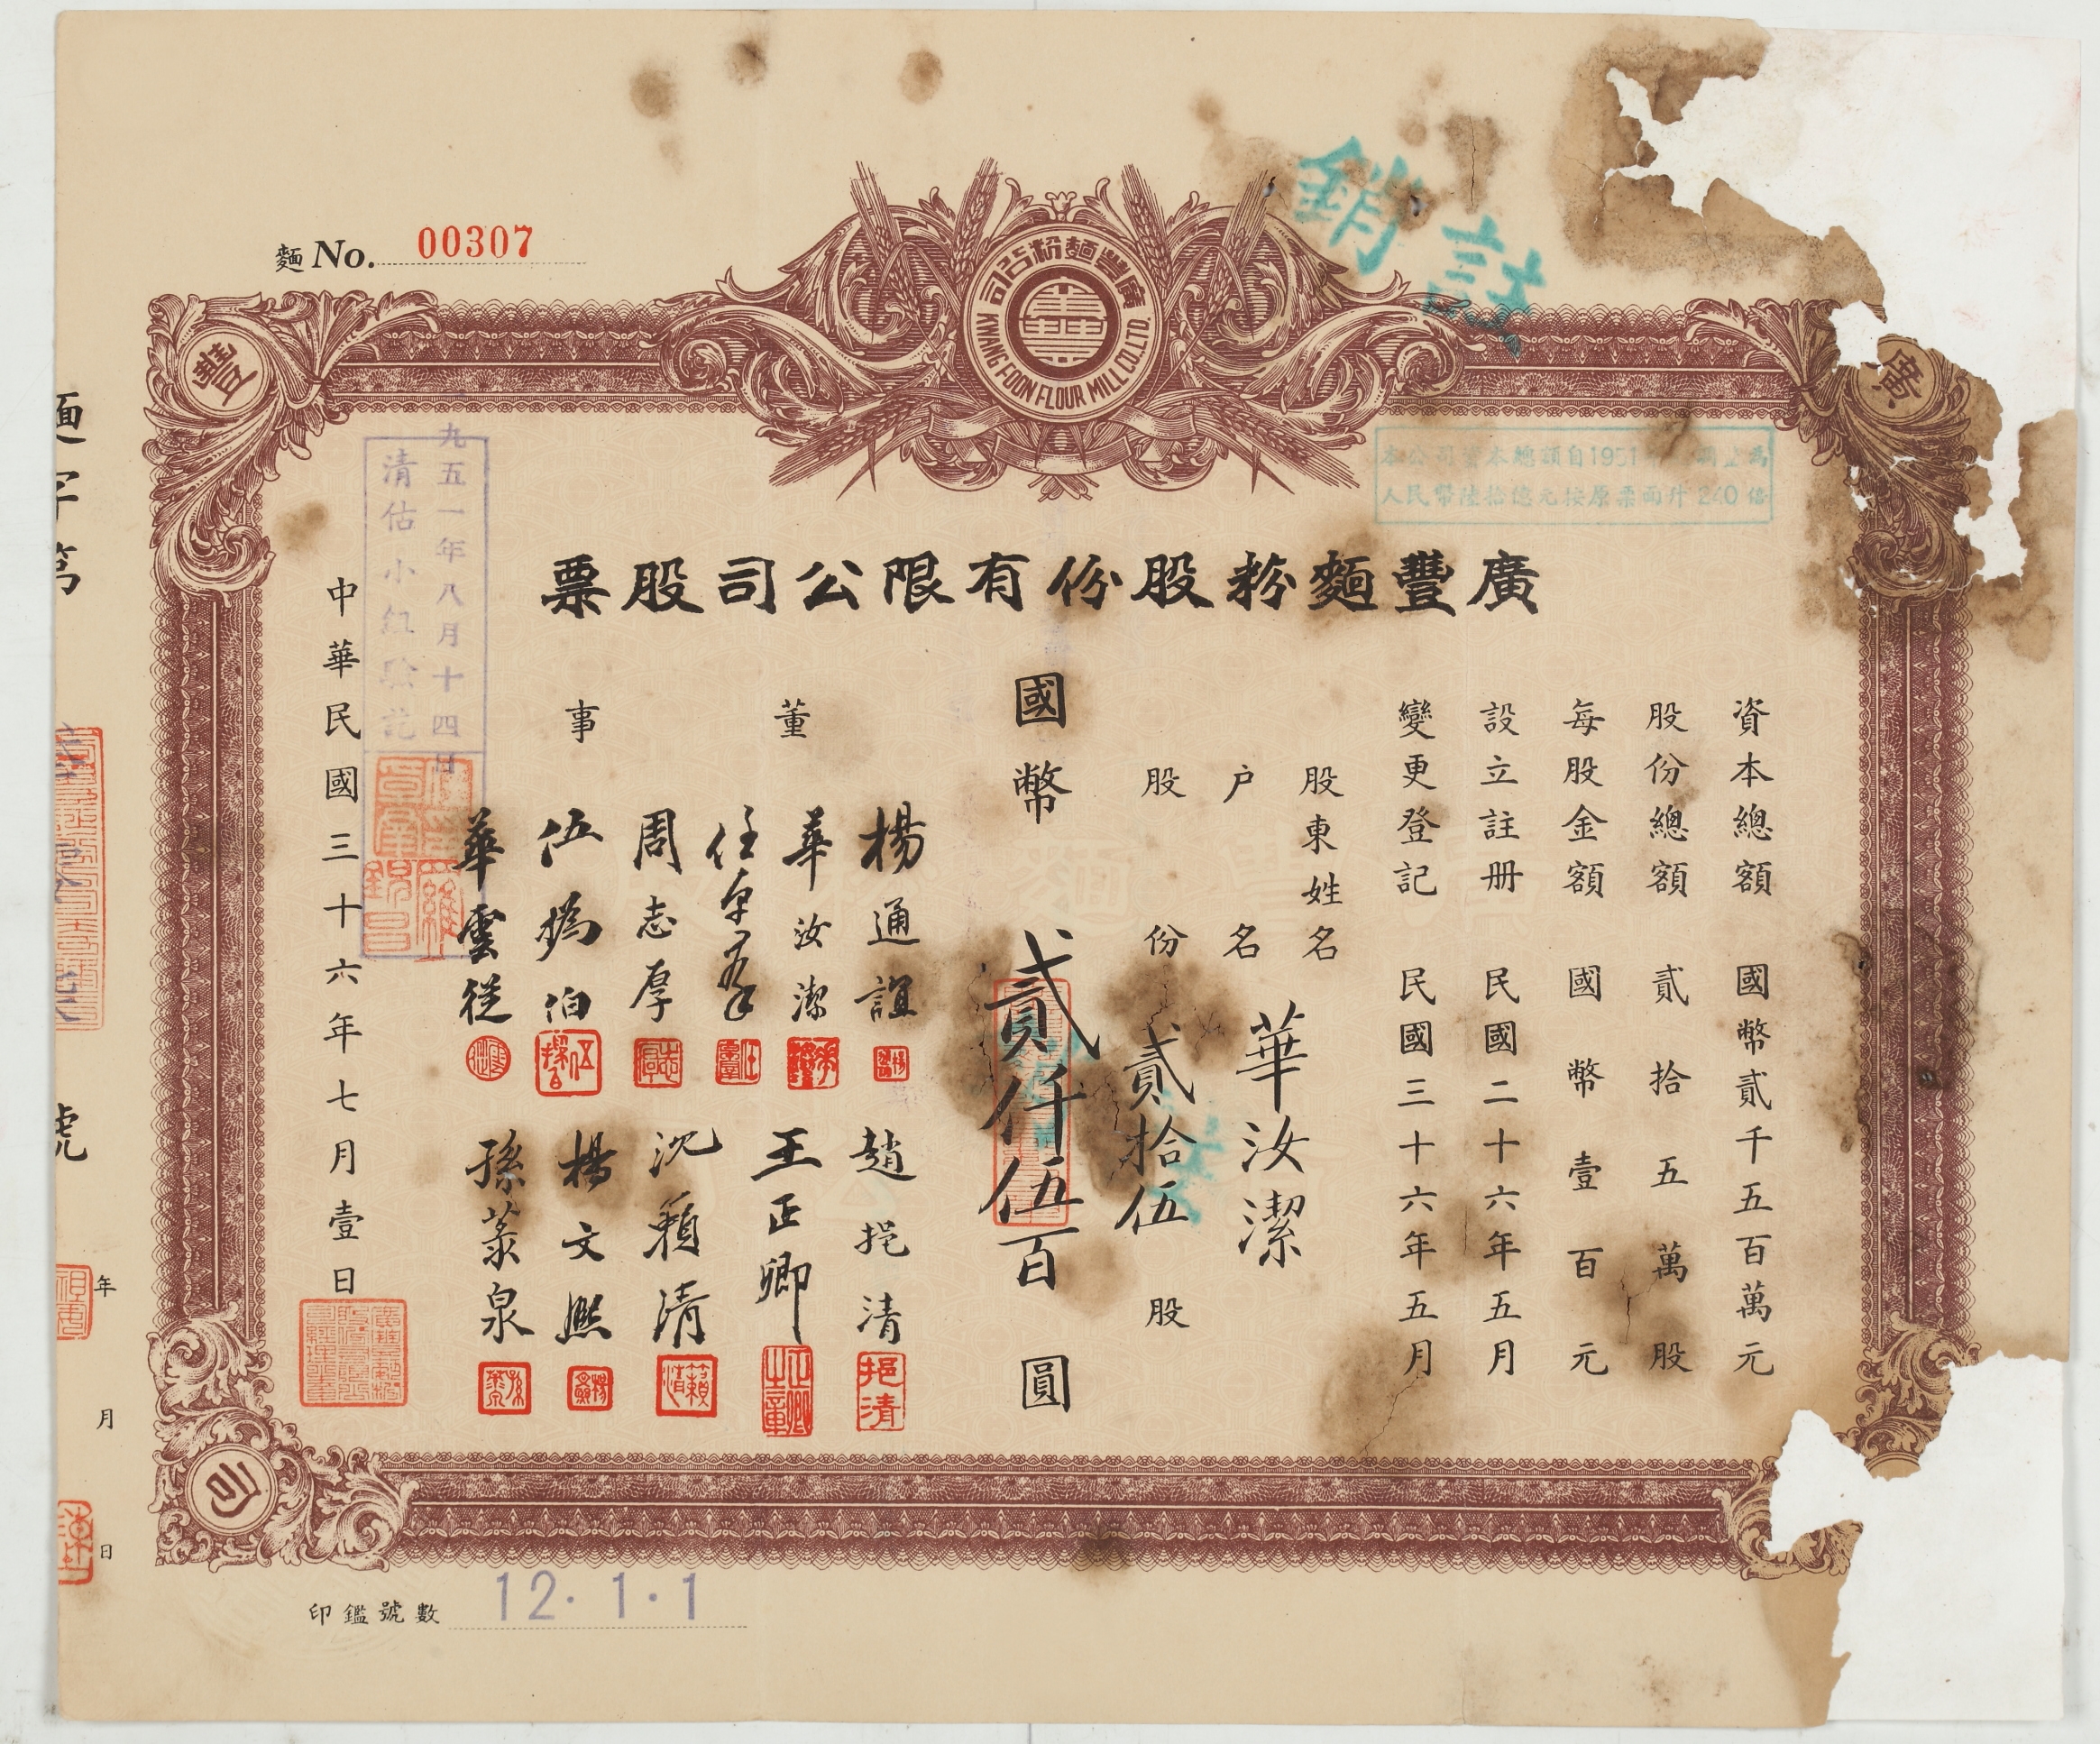 麵 No. 00307
註銷
廣豐麵粉公司
KWANG FOON FLOUR MILL CO., LTD.
廣
豐
司
本公司資本總額自1951
人民幣陸拾億元按原票面升240倍
廣豐麵粉股份有限公司股票
資本總額 國幣貳千五百萬元
股份總額 貳拾五萬股
每股金額 國幣壹百元
設立註册 民國二十六年五月
變更登記 民國三十六年五月
股東姓名
户名 華汝潔
股份 貳拾伍 股
國幣 貳仟伍百 圓
董事
楊通誼
華汝潔
任卓羣
周志厚
伍撝伯
華雲從
趙挹清
王正卿
沈籟清
楊文熙
孫蒸泉
挹清
一九五一年八月十四日
清估小組驗訖
羅錦昌
中華民國三十六年七月壹日
麵字第 號
年 月 日
印鑑號數 12.1.1